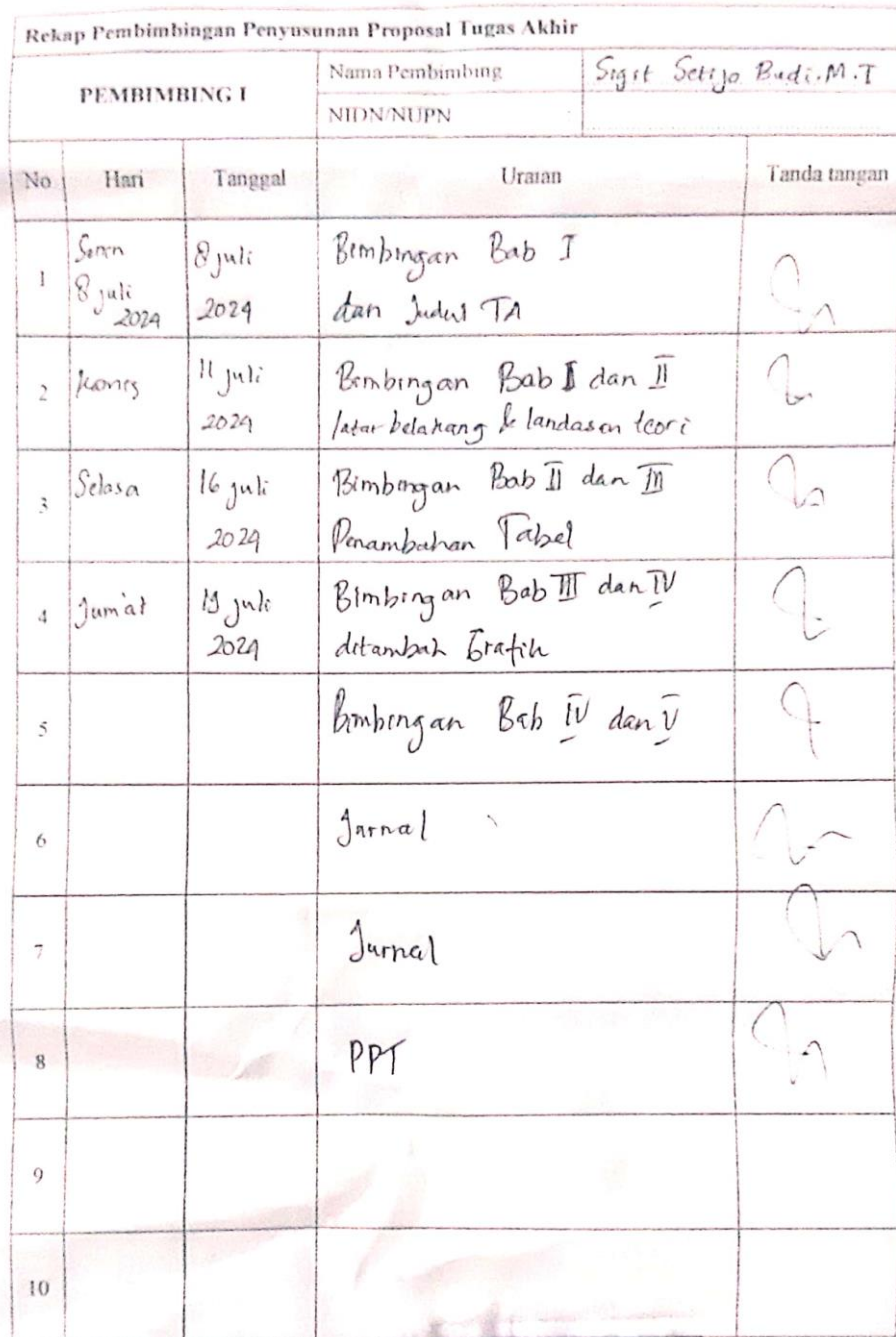 Rekap Pembimbingan Penyusunan Proposal Tugas Akhir
PEMBIMBING I
Nama Pembimbing
Sigit Setijo Budi.M.T
NIDN/NUPN
No Hari Tanggal Uraian Tanda tangan
1 Senin 8 juli Bimbingan Bab I
8 juli 2024 2024 dan Judul TA
2 Kamis 11 juli Bimbingan Bab I dan II
2024 latar belakang & landasan teori
3 Selasa 16 juli Bimbingan Bab II dan III
2024 Penambahan Tabel
4 Jum'at 19 juli Bimbingan Bab III dan IV
2024 ditambah Grafik
5 Bimbingan Bab IV dan V
6 Jurnal
7 Jurnal
8 PPT
9
10